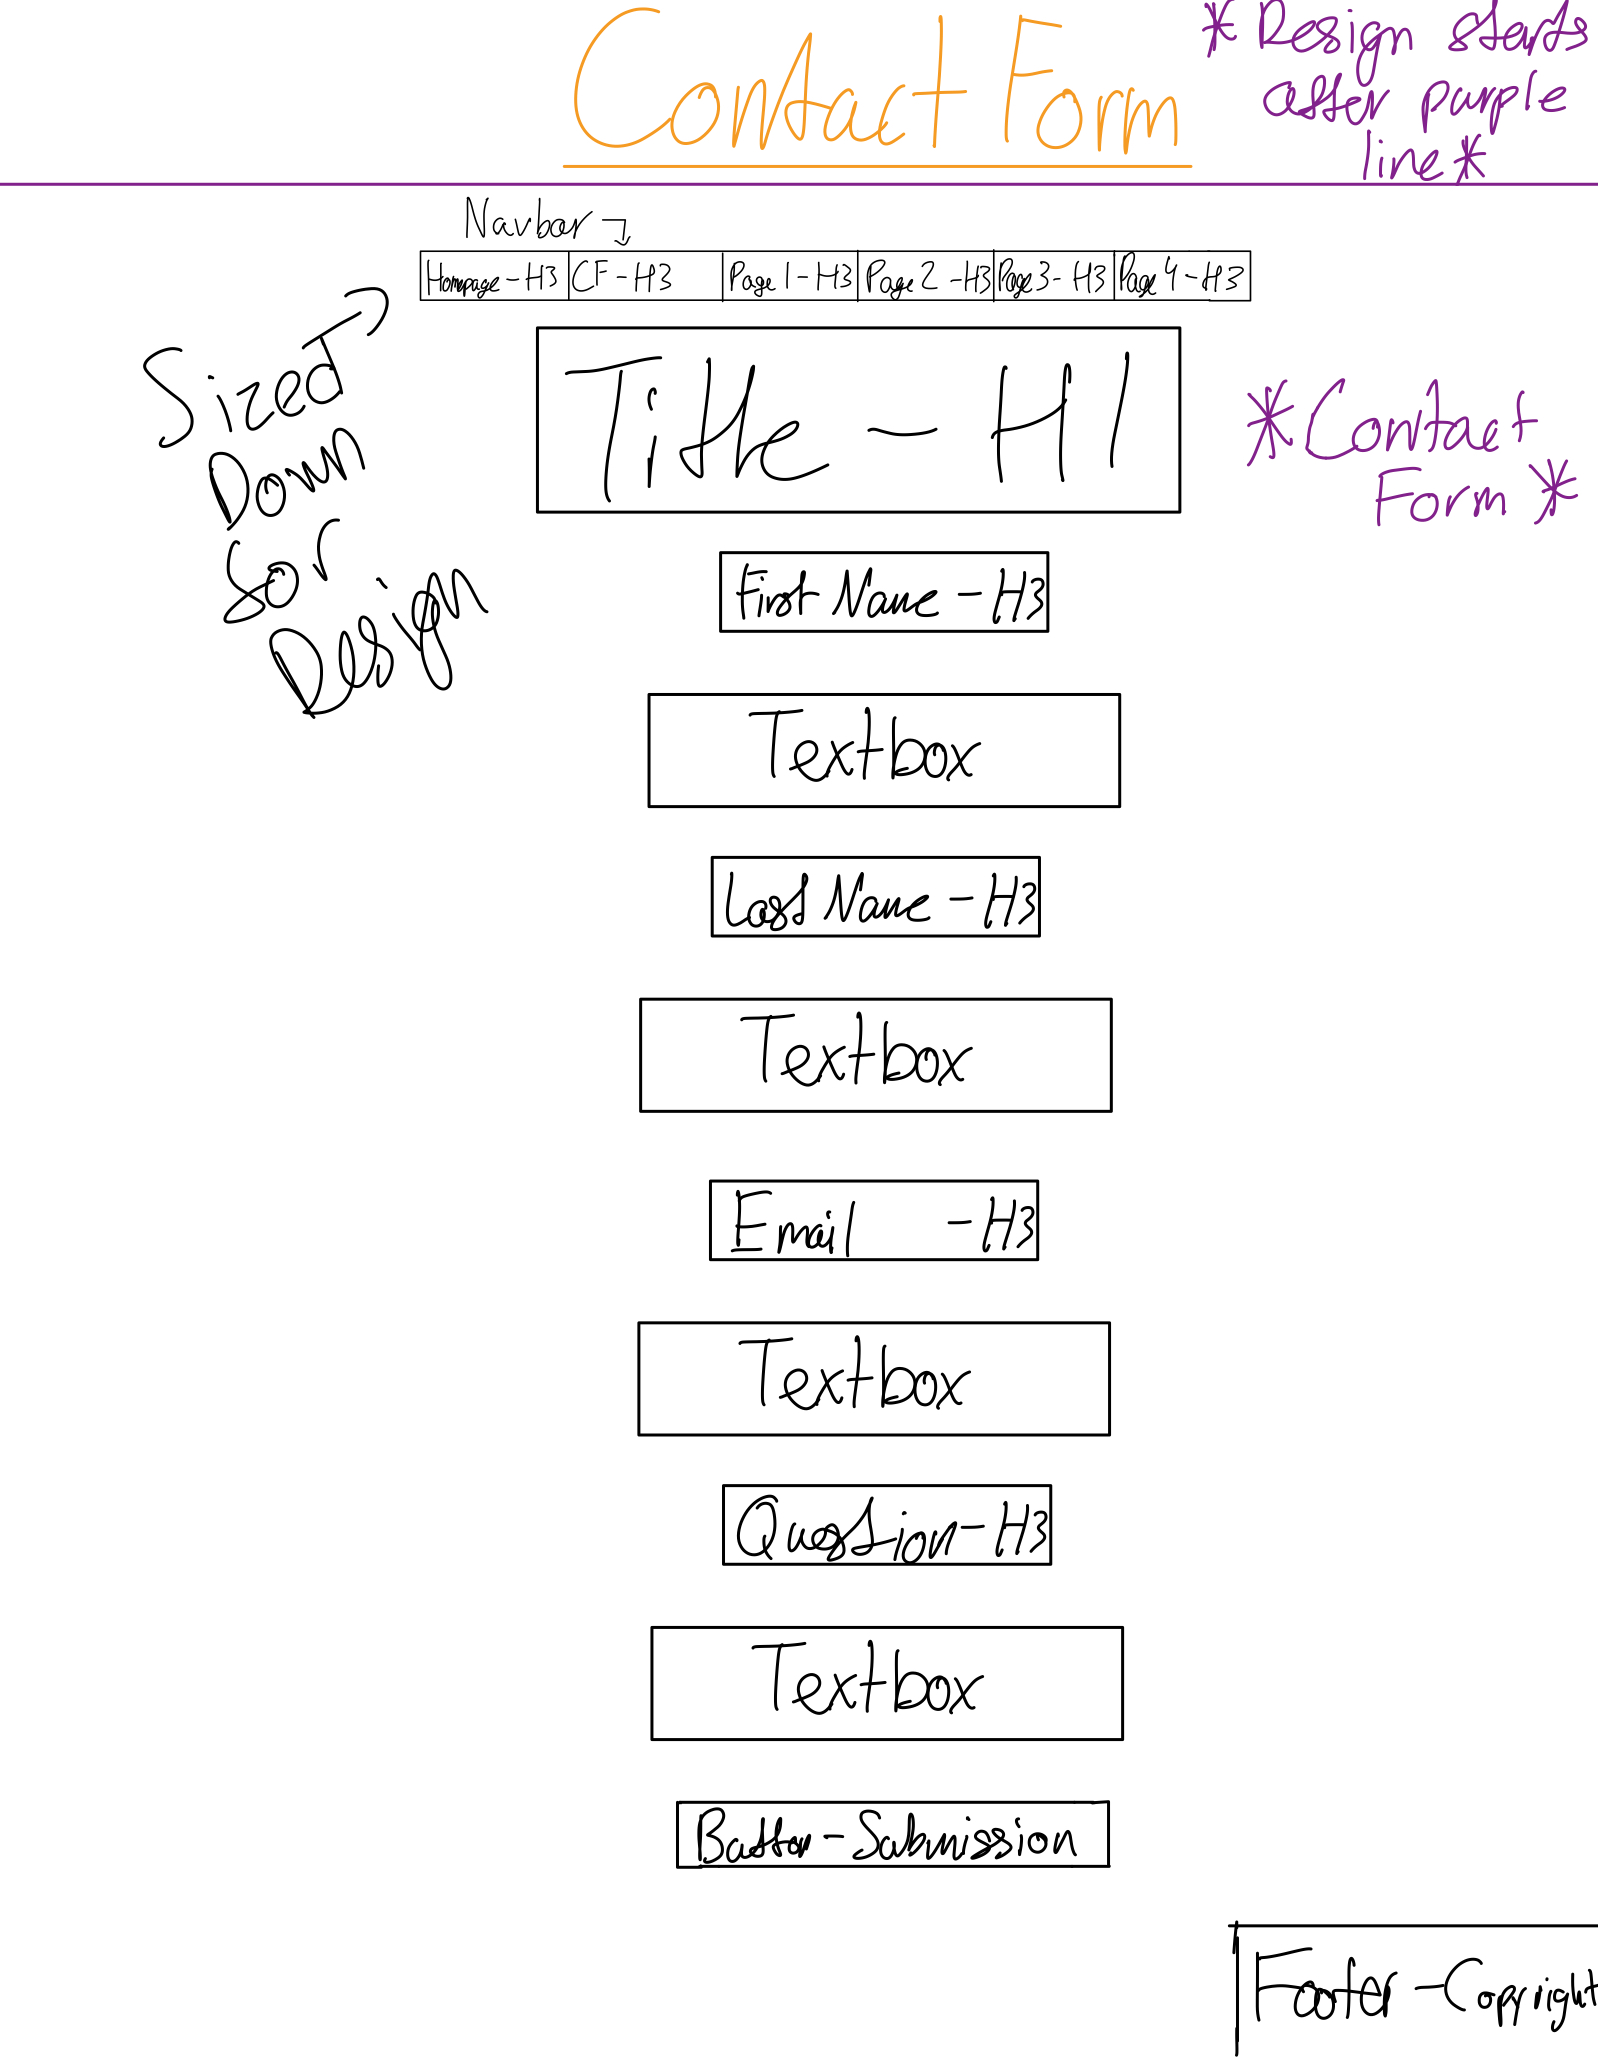 Contact Form
*Design starts
after purple
line*
Navbar
Homepage - H3 CF - H3 Page 1 - H3 Page 2 - H3 Page 3 - H3 Page 4 - H3
Sized
Down
for
Design
Title - H1
*Contact
Form*
First Name - H3
Textbox
Last Name - H3
Textbox
Email - H3
Textbox
Question - H3
Textbox
Button - Submission
Footer - Copyright